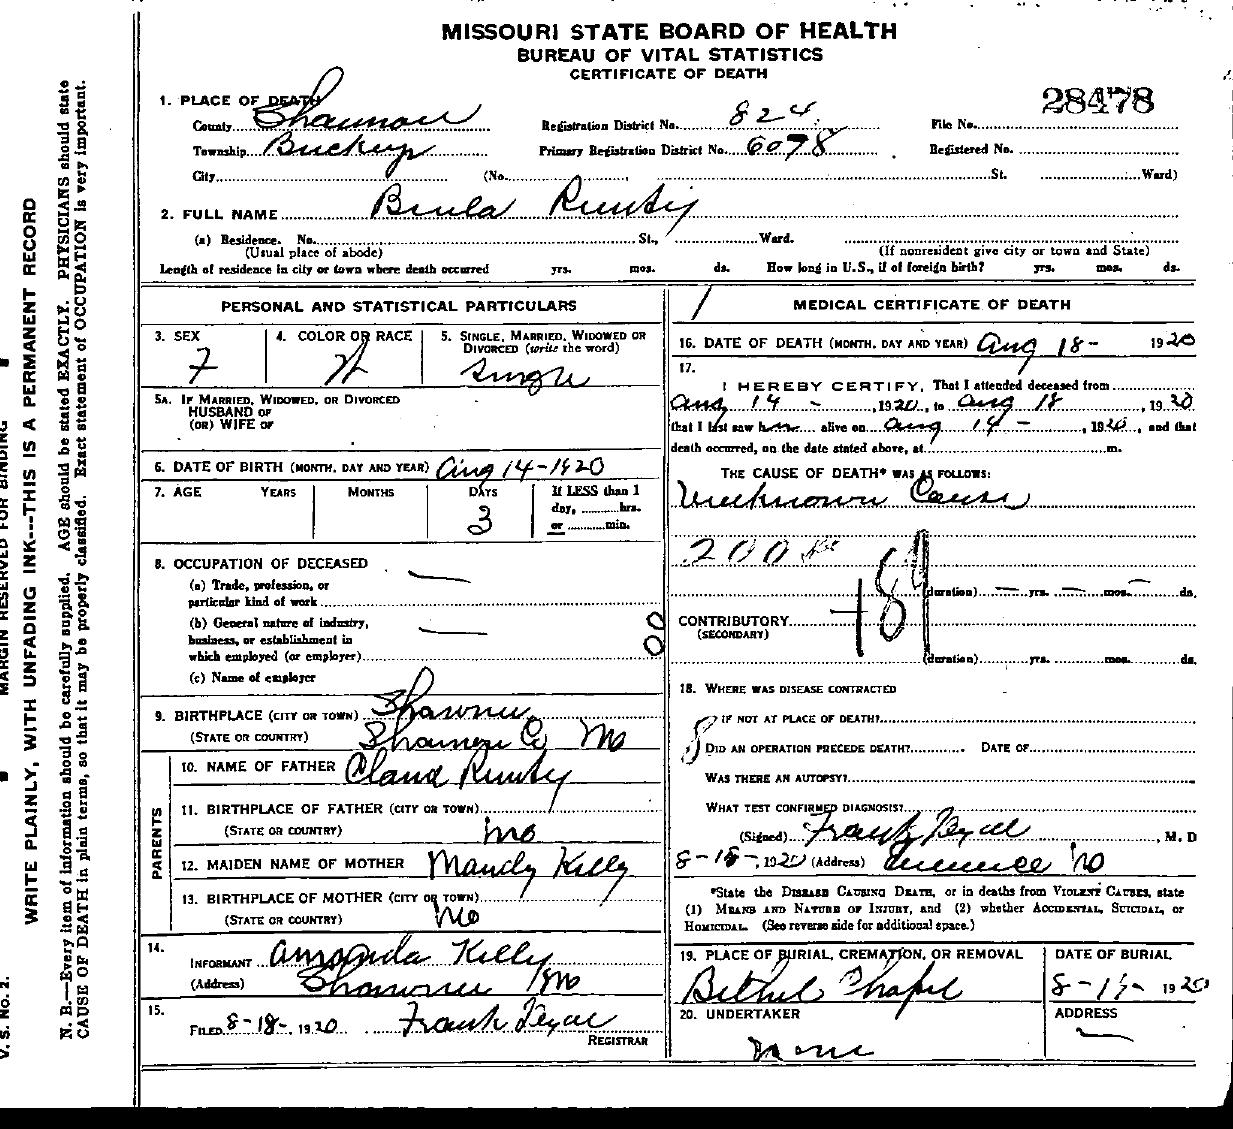 MISSOURI STATE BOARD OF HEALTH
BUREAU OF VITAL STATISTICS
CERTIFICATE OF DEATH
28478
1. PLACE OF DEATH
County Shannon Registration District No. 824 File No.
Township Primary Registration District No. 6078 Registered No.
City (No. St. Ward)
2. FULL NAME Beula
(a) Residence. No. St., Ward.
(Usual place of abode) (If nonresident give city or town and State)
Length of residence in city or town where death occurred yrs. mos. ds. How long in U.S., if of foreign birth? yrs. mos. ds.
PERSONAL AND STATISTICAL PARTICULARS
3. SEX 4. COLOR OR RACE 5. SINGLE, MARRIED, WIDOWED OR
DIVORCED (write the word)
F W Single
5A. IF MARRIED, WIDOWED, OR DIVORCED
HUSBAND OF
(OR) WIFE OF
6. DATE OF BIRTH (MONTH, DAY AND YEAR) Aug 14-1920
7. AGE YEARS MONTHS DAYS If LESS than 1
day, hrs.
or min.
3
8. OCCUPATION OF DECEASED
(a) Trade, profession, or
particular kind of work
(b) General nature of industry,
business, or establishment in
which employed (or employer)
(c) Name of employer
9. BIRTHPLACE (CITY OR TOWN)
(STATE OR COUNTRY) Shannon Co Mo
PARENTS
10. NAME OF FATHER Claud
11. BIRTHPLACE OF FATHER (CITY OR TOWN)
(STATE OR COUNTRY) Mo
12. MAIDEN NAME OF MOTHER Mandy Kelly
13. BIRTHPLACE OF MOTHER (CITY OR TOWN)
(STATE OR COUNTRY) Mo
14.
INFORMANT Amanda Kelly
(Address) Mo
15.
FILED 8-18-, 1920 Frank
REGISTRAR
MEDICAL CERTIFICATE OF DEATH
16. DATE OF DEATH (MONTH, DAY AND YEAR) Aug 18- 1920
17.
I HEREBY CERTIFY, That I attended deceased from
Aug 14 -, 1920, to Aug 18, 1920
that I last saw alive on Aug 14 -, 1920, and that
death occurred, on the date stated above, at m.
THE CAUSE OF DEATH* WAS AS FOLLOWS:
Unknown Cause
200
189
(duration) yrs. mos. ds.
CONTRIBUTORY
(SECONDARY)
(duration) yrs. mos. ds.
18. WHERE WAS DISEASE CONTRACTED
IF NOT AT PLACE OF DEATH?
DID AN OPERATION PRECEDE DEATH? DATE OF
WAS THERE AN AUTOPSY?
WHAT TEST CONFIRMED DIAGNOSIS?
(Signed) Frank , M. D
8-18-, 1920 (Address)
*State the DISEASE CAUSING DEATH, or in deaths from VIOLENT CAUSES, state
(1) MEANS AND NATURE OF INJURY, and (2) whether ACCIDENTAL, SUICIDAL, or
HOMICIDAL. (See reverse side for additional space.)
19. PLACE OF BURIAL, CREMATION, OR REMOVAL DATE OF BURIAL
Bethel Chapel 8- 1920
20. UNDERTAKER ADDRESS
None
V. S. No. 2. MARGIN RESERVED FOR BINDING
WRITE PLAINLY, WITH UNFADING INK---THIS IS A PERMANENT RECORD
N. B.—Every item of information should be carefully supplied. AGE should be stated EXACTLY. PHYSICIANS should state
CAUSE OF DEATH in plain terms, so that it may be properly classified. Exact statement of OCCUPATION is very important.